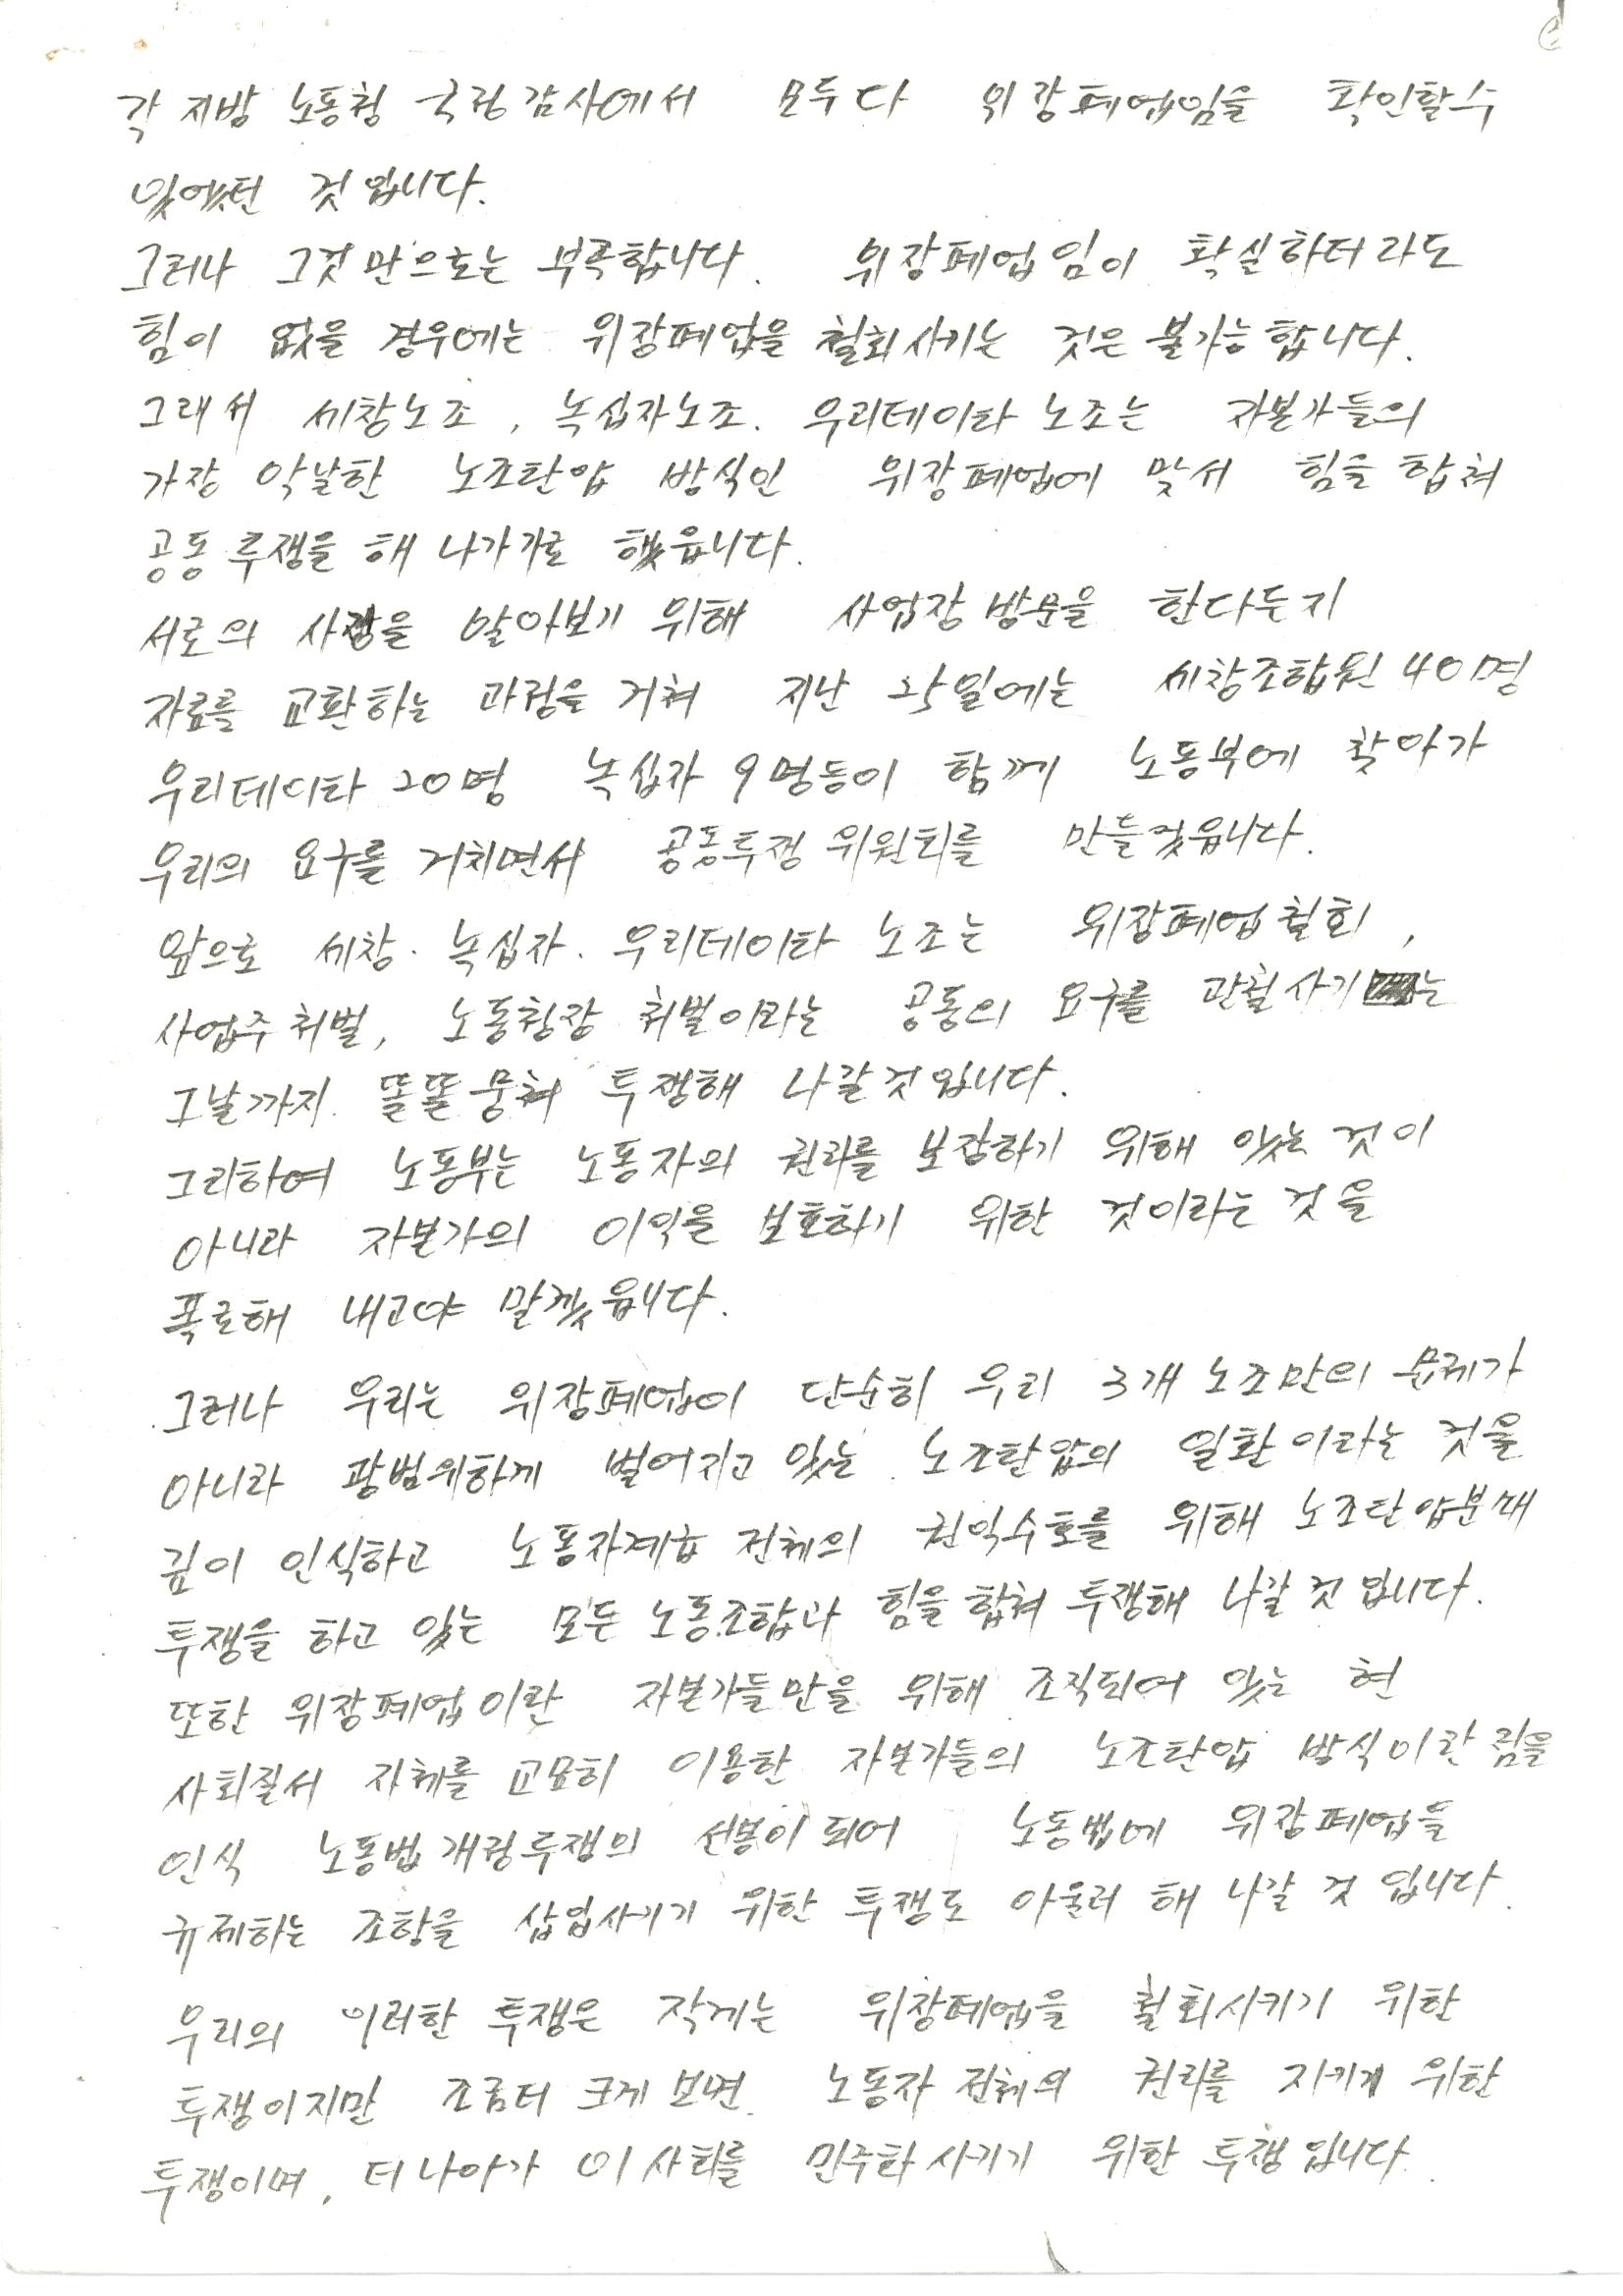 각 지방 노동청 국정감사에서 모두다 위장폐업임을 확인할수
있었던 것 입니다.
그러나 그것만으로는 부족합니다. 위장폐업임이 확실하더라도
힘이 없을 경우에는 위장폐업을 철회시키는 것은 불가능 합니다.
그래서 세창노조, 녹십자노조. 우리데이타 노조는 자본가들의
가장 악날한 노조탄압 방식인 위장폐업에 맞서 힘을 합쳐
공동투쟁을 해 나가기로 했읍니다.
서로의 을 알아보기 위해 사업장 방문을 한다든지
자료를 교환하는 과정을 거쳐 지난 25일에는 세창조합원 40명
우리데이타 20명 녹십자 9명등이 함께 노동부에 찾아가
우리의 요구를 거치면서 공동투쟁 위원회를 만들것읍니다.
앞으로 세창. 녹십자. 우리데이타 노조는 위장폐업철회,
사업주 처벌, 노동청장 처벌이라는 공동의 요구를 관철시키는
그날까지 똘똘 뭉쳐 투쟁해 나갈것입니다.
그리하여 노동부는 노동자의 권리를 보장하기 위해 있는 것이
아니라 자본가의 이익을 보호하기 위한 것이라는 것을
폭로해 내고야 말겠읍니다.
그러나 우리는 위장폐업이 단순히 우리 3개 노조만의 문제가
아니라 광범위하게 벌어지고 있는 노조탄압의 일환이라는 것을
깊이 인식하고 노동자계급 전체의 권익수호를 위해 노조탄압분쇄
투쟁을 하고 있는 모든 노동조합과 힘을 합쳐 투쟁해 나갈 것 입니다.
또한 위장폐업이란 자본가들만을 위해 조직되어 있는 현
사회질서 자체를 교묘히 이용한 자본가들의 노조탄압 방식이란 점을
인식 노동법개정투쟁의 선봉이 되어 노동법에 위장폐업들
규제하는 조항을 삽입시키기 위한 투쟁도 아울러 해 나갈 것 입니다.
우리의 이러한 투쟁은 작게는 위장폐업을 철회시키기 위한
투쟁이지만 조금더 크게 보면 노동자 전체의 권리를 지키기 위한
투쟁이며, 더 나아가 이 사회를 민주화 시키기 위한 투쟁 입니다.